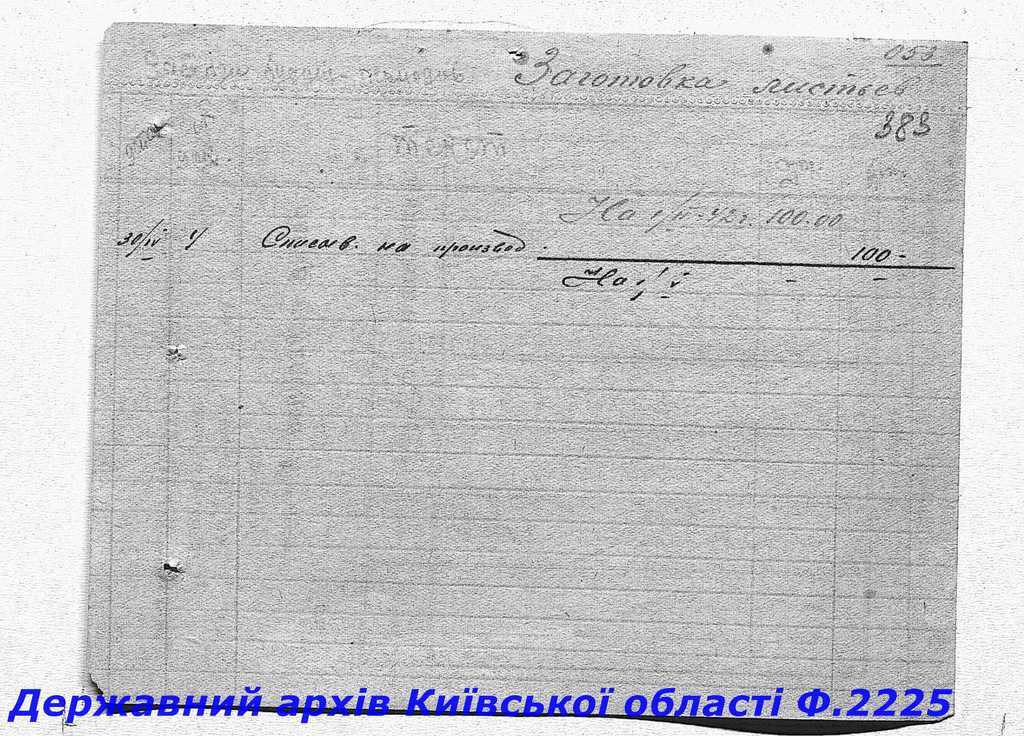 053
Заготовка листьев
383
текст
На 1/IV-42г. 100.00
30/IV 4/ Списыв. на производ. 100-
На 1/V - -
Державний архів Київської області Ф.2225